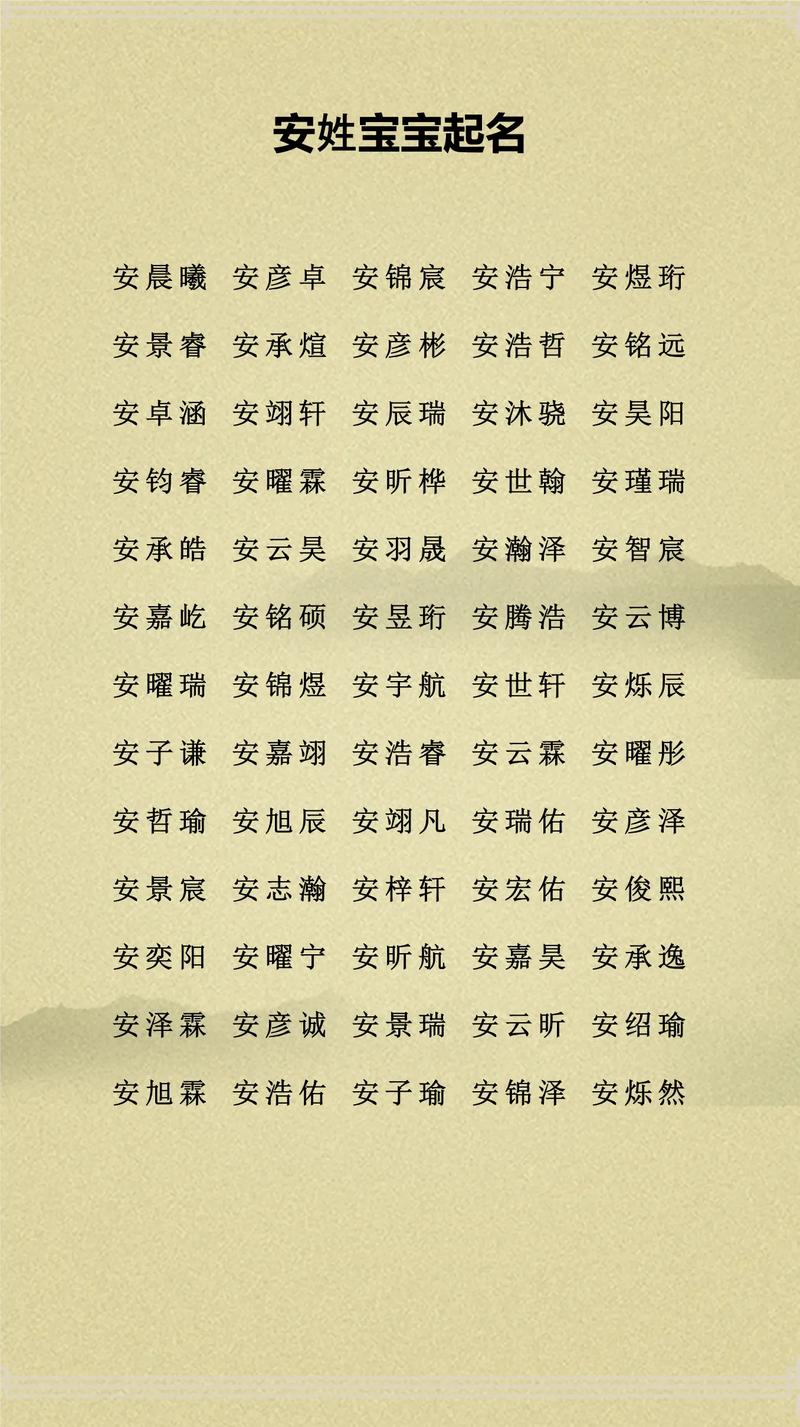 安姓宝宝起名
安晨曦 安彦卓 安锦宸 安浩宁 安煜珩
安景睿 安承煊 安彦彬 安浩哲 安铭远
安卓涵 安翊轩 安辰瑞 安沐骁 安昊阳
安钧睿 安曜霖 安昕桦 安世翰 安瑾瑞
安承皓 安云昊 安羽晟 安瀚泽 安智宸
安嘉屹 安铭硕 安昱珩 安腾浩 安云博
安曜瑞 安锦煜 安宇航 安世轩 安烁辰
安子谦 安嘉翊 安浩睿 安云霖 安曜彤
安哲瑜 安旭辰 安翊凡 安瑞佑 安彦泽
安景宸 安志瀚 安梓轩 安宏佑 安俊熙
安奕阳 安曜宁 安昕航 安嘉昊 安承逸
安泽霖 安彦诚 安景瑞 安云昕 安绍瑜
安旭霖 安浩佑 安子瑜 安锦泽 安烁然